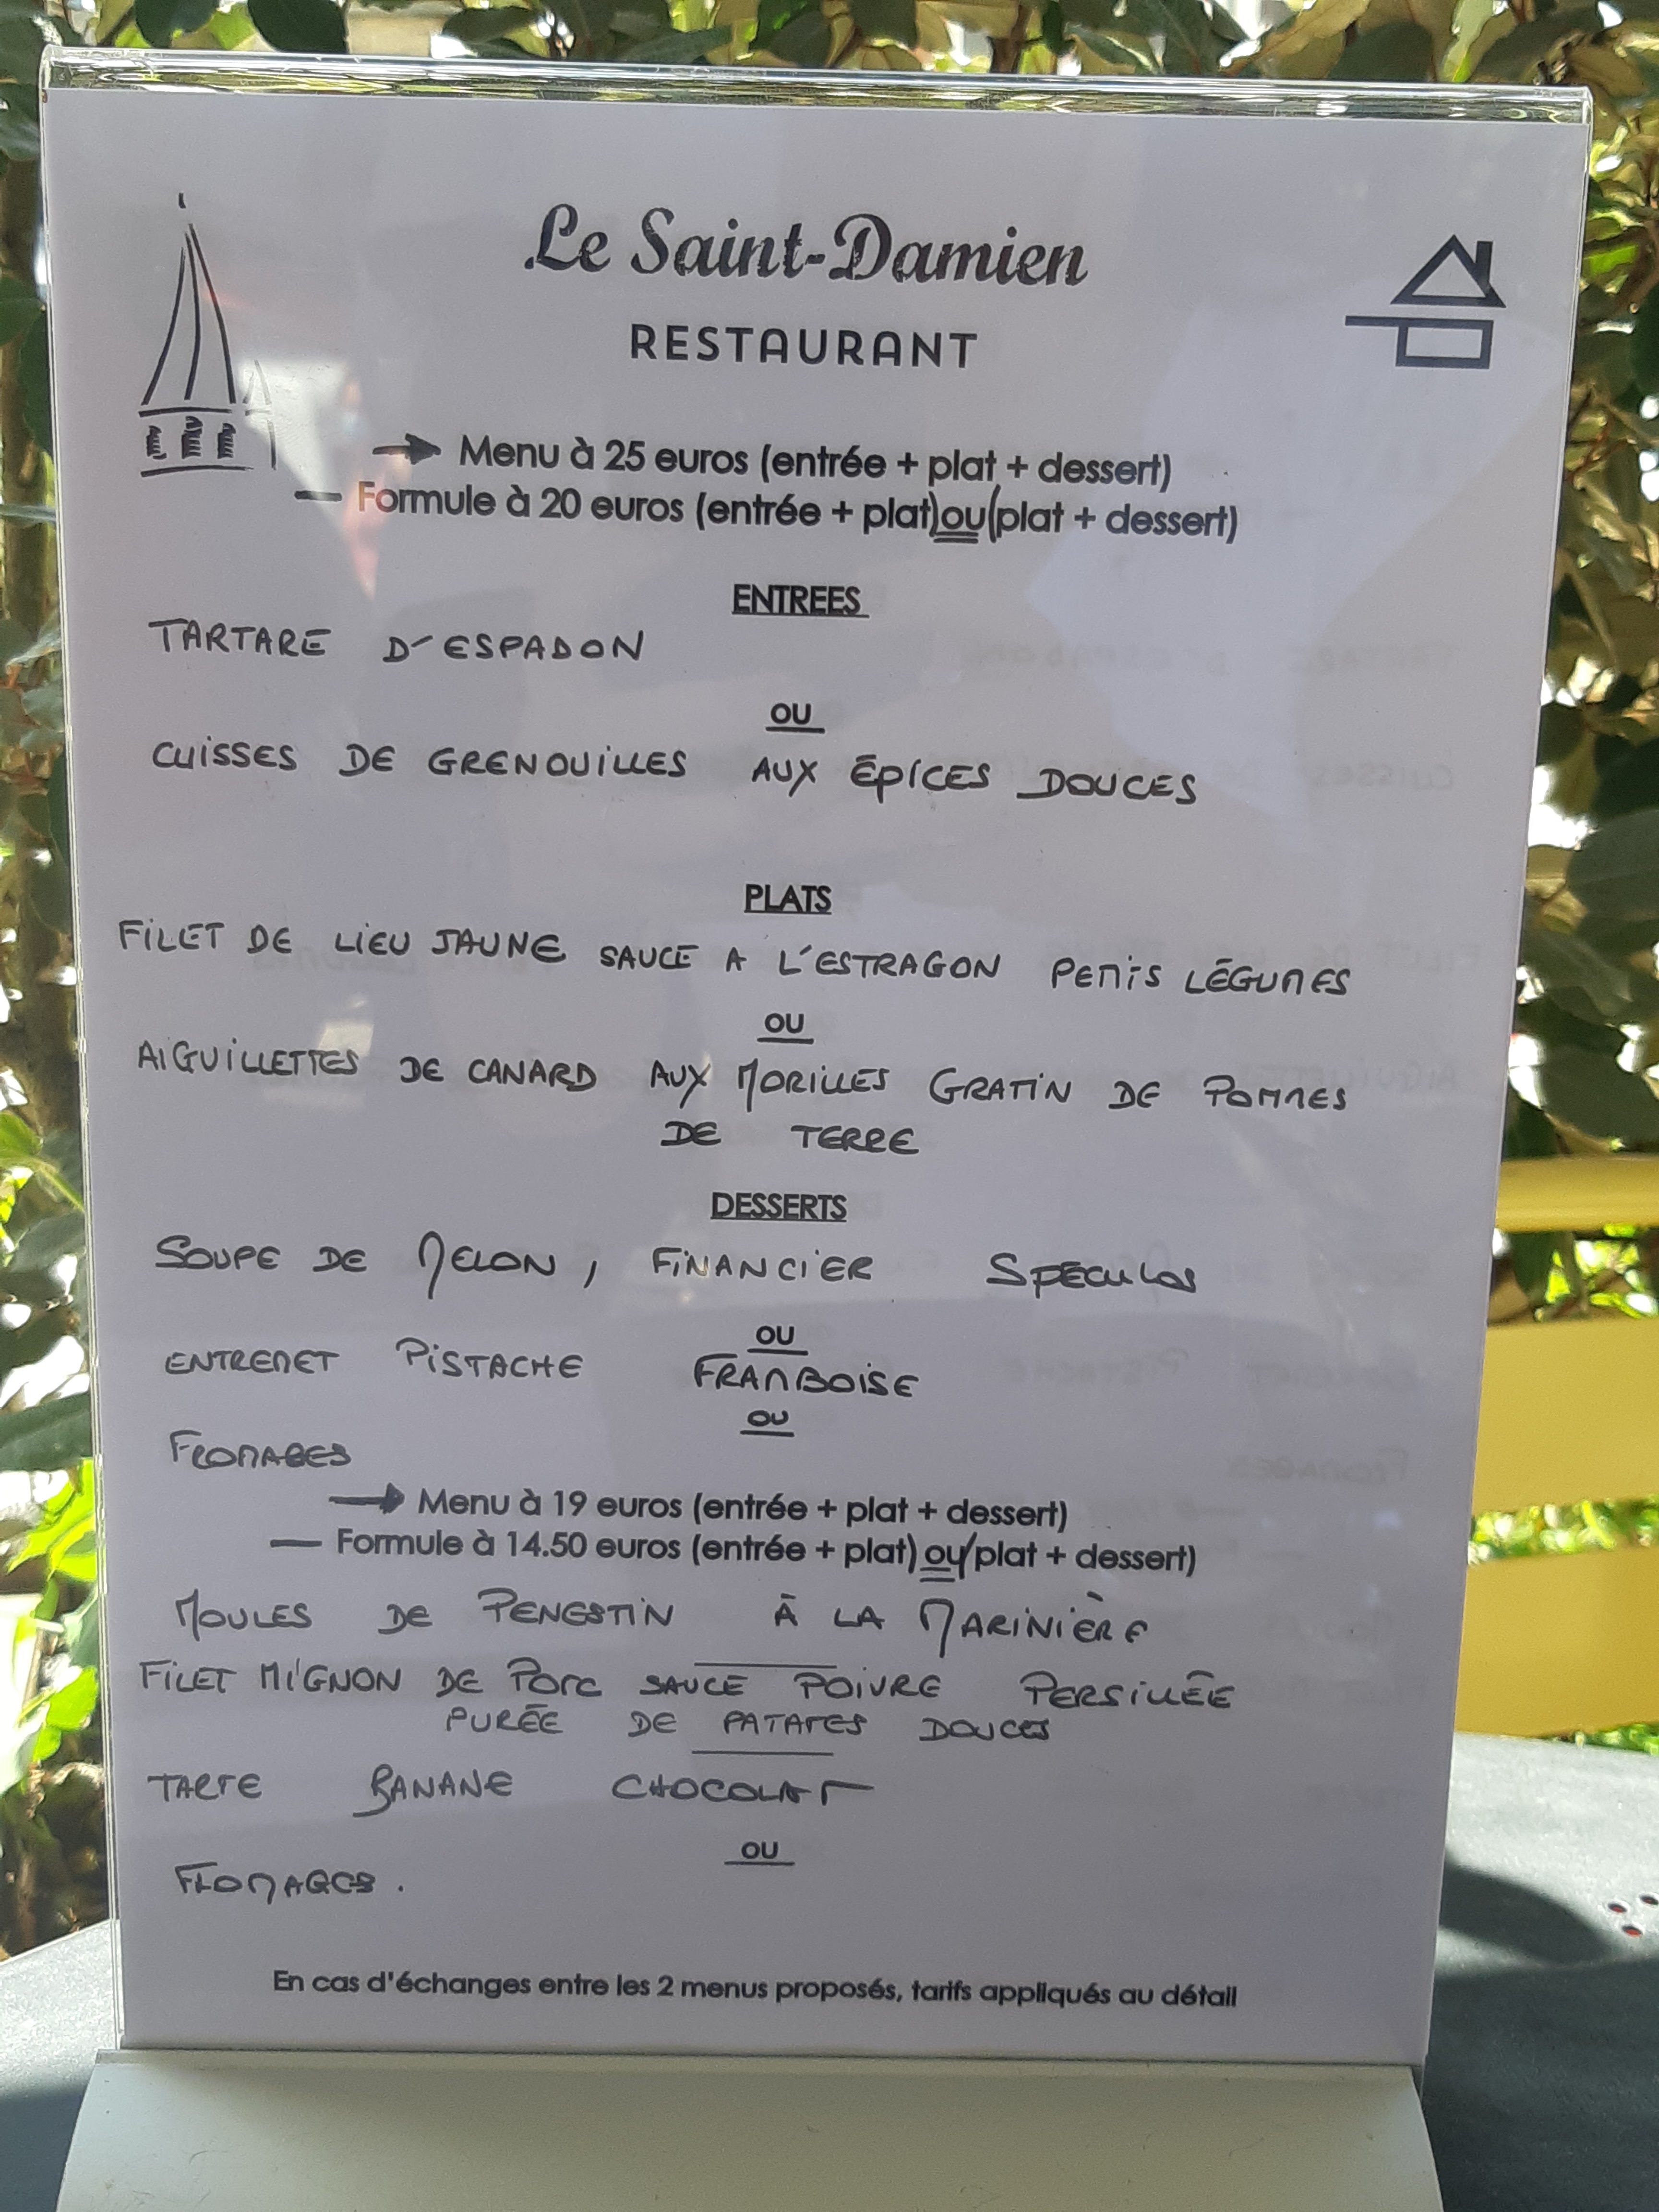 Le Saint-Damien
RESTAURANT
Menu à 25 euros (entrée + plat + dessert)
Formule à 20 euros (entrée + plat) ou (plat + dessert)
ENTREES
TARTARE D'ESPADON
OU
CUISSES DE GRENOUILLES AUX ÉPICES DOUCES
PLATS
FILET DE LIEU JAUNE SAUCE A L'ESTRAGON PETITS LÉGUMES
OU
AIGUILLETTES DE CANARD AUX MORILLES GRATIN DE POMMES
DE TERRE
DESSERTS
SOUPE DE MELON, FINANCIER SPECULOS
OU
ENTREMET PISTACHE FRAMBOISE
OU
FROMAGES
Menu à 19 euros (entrée + plat + dessert)
Formule à 14.50 euros (entrée + plat) ou (plat + dessert)
MOULES DE PENESTIN À LA MARINIÈRE
FILET MIGNON DE PORC SAUCE POIVRE PERSILLÉE
PURÉE DE PATATES DOUCES
TARTE BANANE CHOCOLAT
OU
FROMAGES.
En cas d'échanges entre les 2 menus proposés, tarifs appliqués au détail